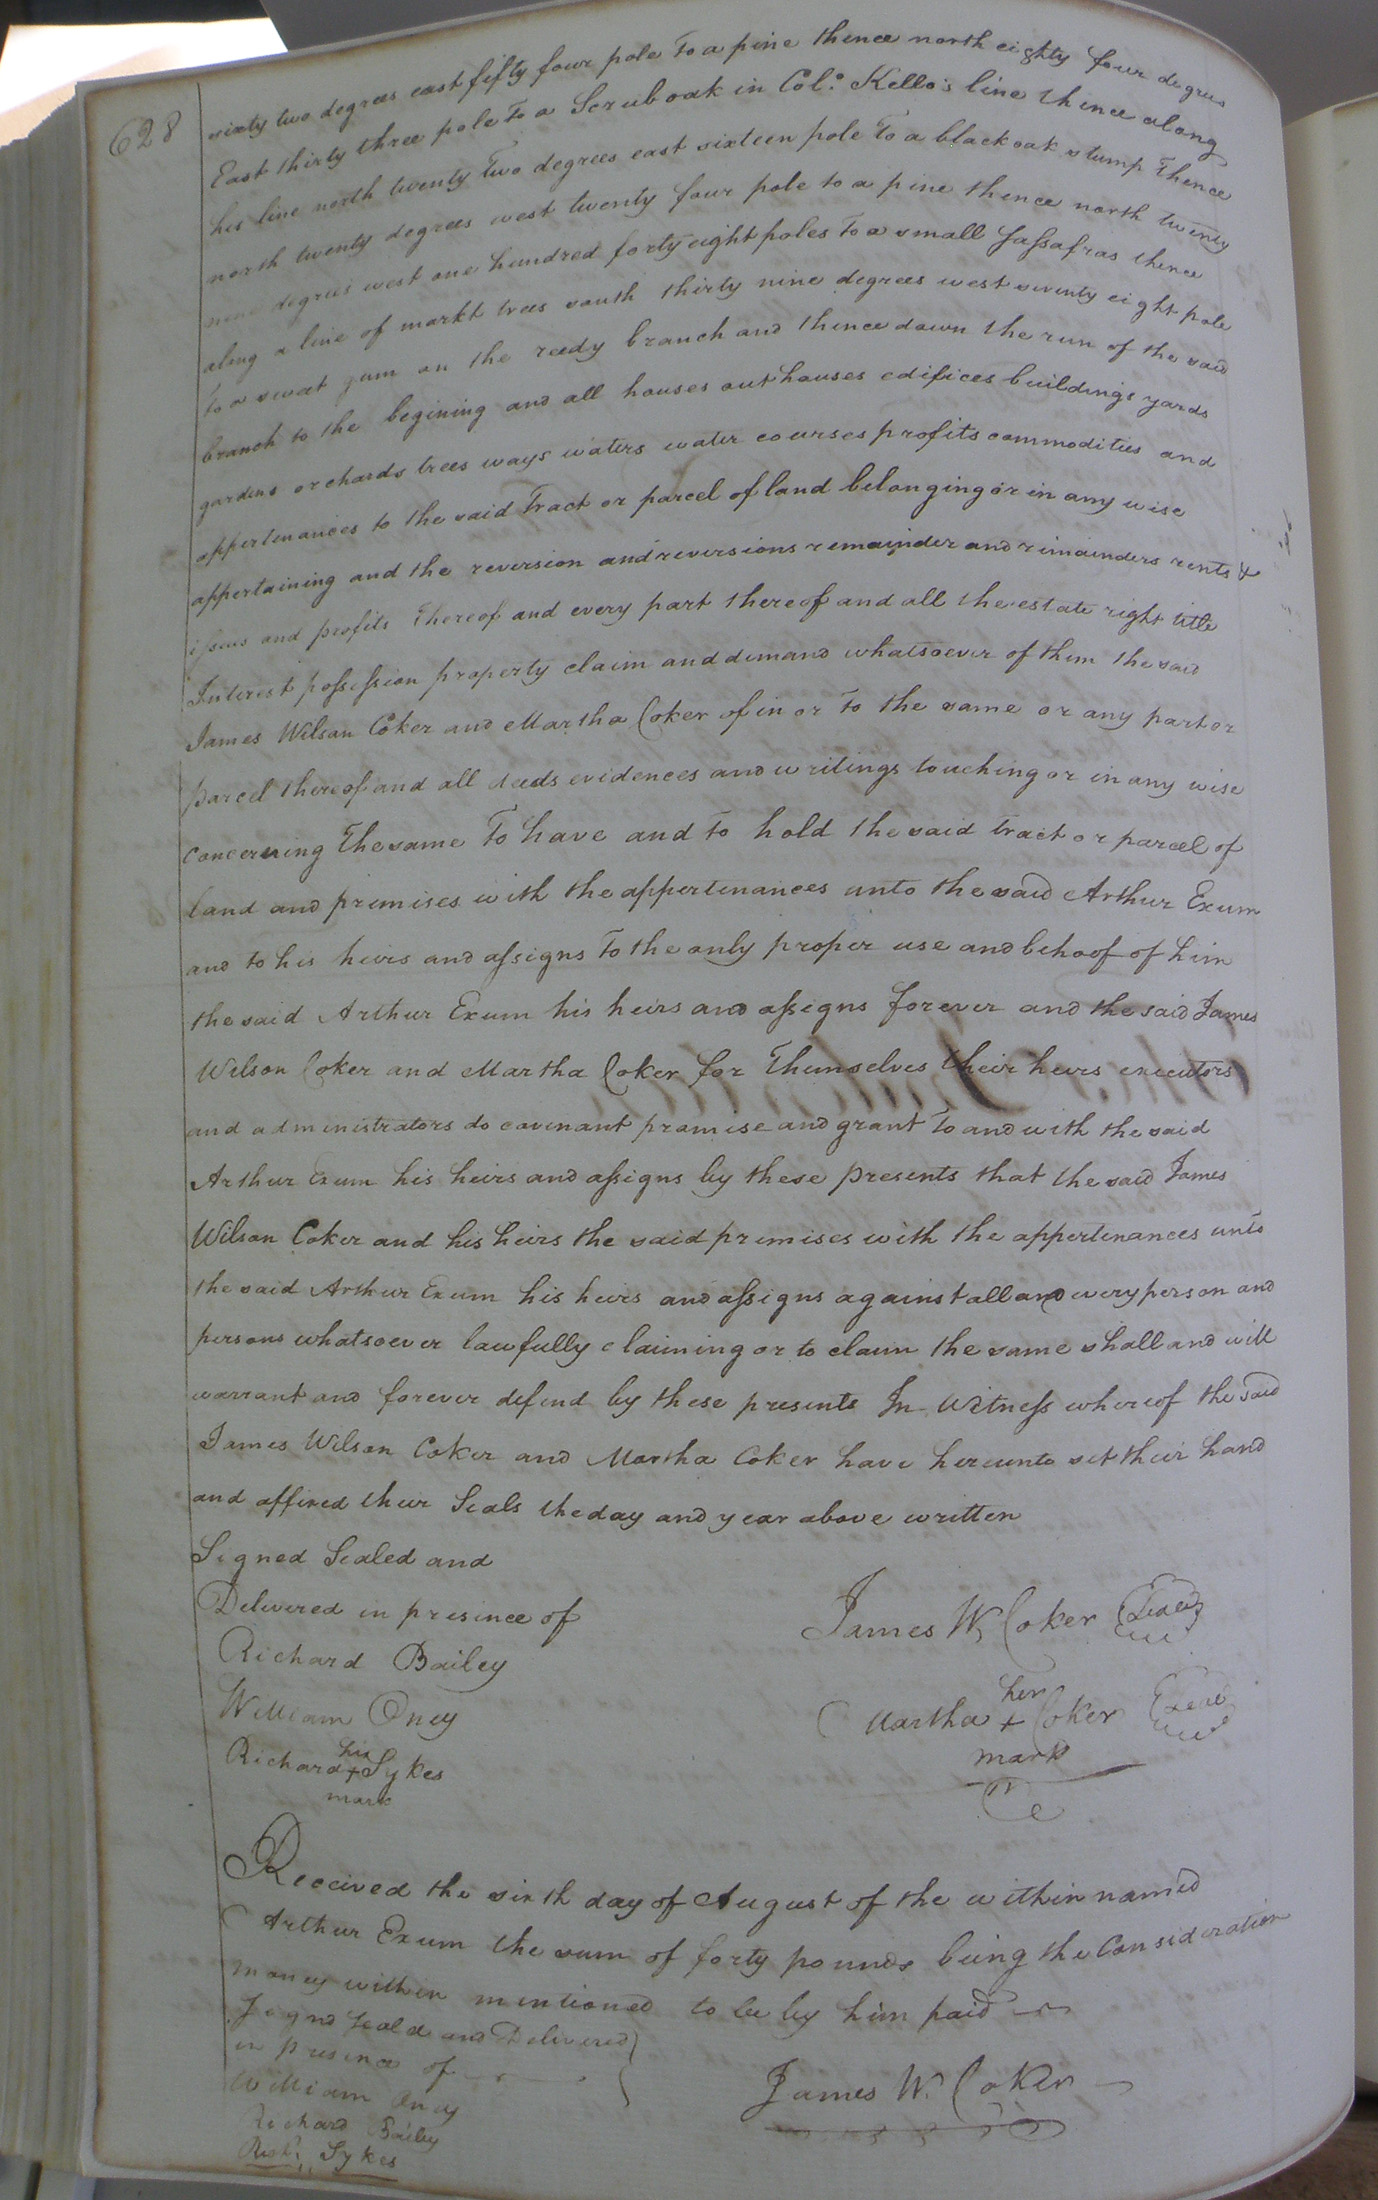 628
sixty two degrees east fifty four pole To a pine thence north eighty four degrees
East thirty three pole To a Scrub oak in Col.o Kello's line thence along
his line north twenty Two degrees east sixteen pole To a black oak stump Thence
north twenty degrees west twenty four pole to a pine thence north twenty
nine degrees west one hundred forty eight poles To a small Saſsafras thence
along a line of markt trees south thirty nine degrees west seventy eight pole
to a sweat gum on the reedy branch and thence down the run of the said
branch to the begining and all houses outhouses edifices buildings yards
gardens orchards trees ways waters water courses profits commodities and
appertenances to the said Tract or parcel of land belonging or in any wise
appertaining and the reversion and reversions remainder and remainders rents &
iſsues and profits Thereof and every part thereof and all the estate right title
Interest poſseſsion property claim and demand whatsoever of them the said
James Wilson Coker and Martha Coker of in or To the same or any part or
parcel thereof and all deeds evidences and writings touching or in any wise
concerning The same To have and to hold the said tract or parcel of
land and premises with the appertenances unto the said Arthur Exum
and to his heirs and aſsigns To the only proper use and behoof of him
the said Arthur Exum his heirs and aſsigns forever and the said James
Wilson Coker and Martha Coker for Themselves their heirs executors
and administrators do covenant promise and grant To and with the said
Arthur Exum his heirs and aſsigns by these presents that the said James
Wilson Coker and his heirs the said premises with the appertenances unto
the said Arthur Exum his heirs and aſsigns against all and every person and
persons whatsoever lawfully claiming or to claim the same shall and will
warrant and forever defend by these presents In Witneſs whereof the said
James Wilson Coker and Martha Coker have hereunto set their hand
and affixed their Seals the day and year above written
Signed Sealed and
Delivered in presince of
James W. Coker Seal
Richard Bailey
her
William Oney
Martha + Coker Seal
mark
his
Richard + Sykes
mark
Received the sixth day of August of the within named
Arthur Exum the sum of forty pounds being the Consideration
money within mentioned to be by him paid
Signd Seald and Delivered
in presince of
William Oney
James W. Coker
Richard Bailey
Richd. Sykes